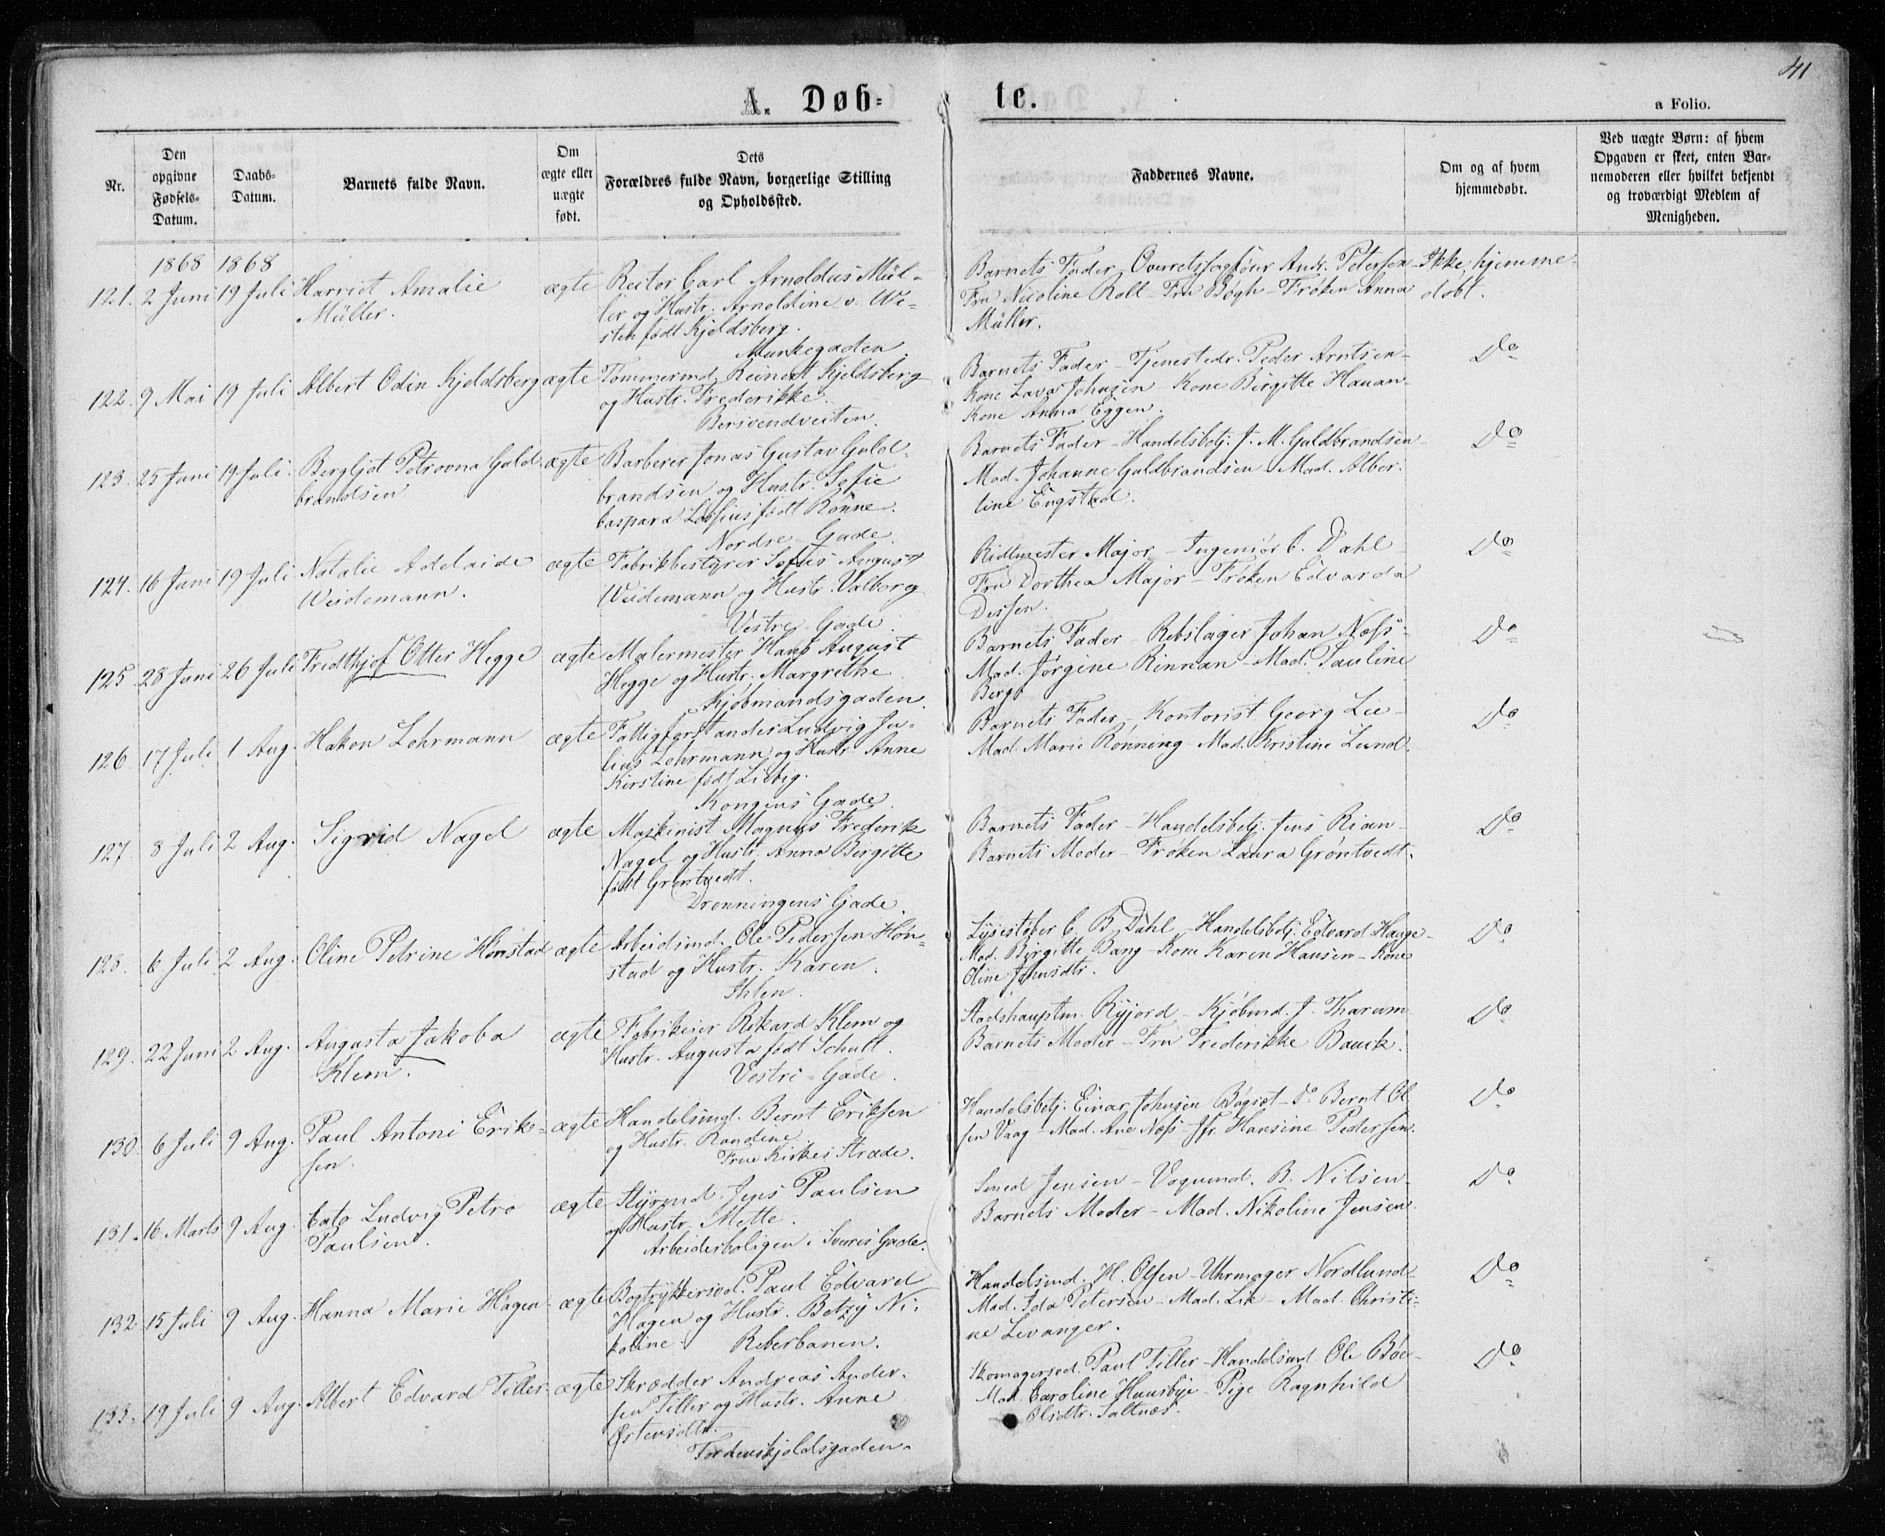 41
A. Døb-
te.
a Folio.
Nr.
Den opgivne Fødsels-Datum.
Daabs-Datum.
Barnets fulde Navn.
Om ægte eller uægte født.
Dets Forældres fulde Navn, borgerlige Stilling og Opholdssted.
Faddernes Navne.
Om og af hvem hjemmedøbt.
Ved uægte Børn: af hvem Opgaven er skeet, enten Barnemoderen eller hvilket bekjendt og troværdigt Medlem af Menigheden.
1868 1868
121. 2 Juni 19 Juli Harriet Amalie
Müller.
ægte
Rector Carl Arnoldus Mül-
ler og Hustr. Arnoldine v. We-
sten født Kjeldsberg.
Munkegaden
Barnets Fader - Overretssagfører Andr. Petersen
Fru Nicoline Roll - Fru Bøgh - Frøken Anna
Müller.
Ikke hjemme-
døbt.
122. 9 Mai 19 Juli Albert Odin Kjeldsberg
ægte
Tømmermd. Reinert Kjeldsberg
og Hustr. Frederikke.
Bersvendveiten.
Barnets Fader - Tjenestedr. Peder Arntsen -
Kone Johnsen - Kone Birgitte Hauan -
Kone Anna Eggen.
Do
123. 25 Juni 19 Juli. Bergljot Petrovna Guld
brandsen
ægte
Barberer Jonas Gustav Guld-
brandsen og Hustr. Sofie
Caspara født Rønne.
Nordre Gade.
Barnets Fader - Handelsbetj. J. M. Guldbrandsen
Mad. Johanne Guldbrandsen - Mad. Alber-
tine Engstad.
Do
124. 16 Juni 19 Juli Natalie Adelaide
Weidemann.
ægte
Fabrikbestyrer Sofus August
Weidemann og Hustr. Valborg
Vestre Gade.
Ridtmester Major - Ingeniør C. Dahl
Fru Dorthea Major - Frøken Edvarda
Dessen.
Do
125 28 Juni 26 Juli Fredthjof Otter Hegge
ægte
Malermester Hans August
Hegge og Hustr. Margrethe
Kjøbmandsgaden.
Barnets Fader - Rebslager Johan Næss -
Mad. Jørgine Rinnan - Mad. Pauline
Berg
Do
126. 17 Juli 1 Aug. Hakon Lohrmann
ægte
Fattigforstander Ludvig Ju-
lius Lohrmann og Hustr. Anne
Kirstine født Liebig.
Kongens Gade
Barnets Fader - Kontorist Georg Lie -
Mad. Marie Rønning - Mad. Kristine Lund.
Do
127. 8 Juli 2 Aug. Sigrid Nagel
ægte
Maskinist Magnus Frederik
Nagel og Hustr. Anna Bergitte
født Grøntvedt.
Dronningens Gade.
Barnets Fader - Handelsbetj. Jens Rian -
Barnets Moder - Frøken Laura Grøntvedt.
Do
128. 6 Juli 2 Aug. Oline Petrine Hønstad
ægte
Arbeidsmd. Ole Pedersen Høn-
stad og Hustr. Karen.
Ihlen.
Lysestøber C. B. Dahl - Handelsbetj. Edvard Hauge -
Mad. Birgitte Bang - Kone Karen Hansen - Kone
Oline Johnsdtr.
Do
129. 22 Juni 2 Aug. Augusta Jakoba
Klem.
ægte
Fabrikeier Rikard Klem og
Hustr. Augusta født Schult.
Vestre-Gade.
Stadshauptm. Ryjord - Kjøbmd. J. Tharum
Barnets Moder - Fru Frederikke Bauck.
Do
130. 6 Juli 9 Aug. Paul Antoni Erik-
sen.
ægte
Handelsmd. Bernt Eriksen
og Hustr. Randine
Frue Kirkes Stræde.
Handelsbetj. Einar Johnsen Bøgsæt - Do Bernt Ol
sen Vaag - Mad. Ane Næss - Jfr. Hansine Pedersen.
Do
131. 16 Marts 9 Aug. Cato Ludvig Petro
Paulsen.
ægte
Styrmd. Jens Paulsen
og Hustr. Mette.
Arbeiderboligen i Sverres Gade.
Smed Jensen - Vognmd. B. Nilsen -
Barnets Moder - Mad. Nikoline Jensen.
Do
132 15 Juli 9 Aug. Hanna Marie Hagen
ægte
Bogtrykkersvd. Paul Edvard
Hagen og Hustr. Betzy Ni-
koline
Reberbanen.
Handelsmd. H. Olsen - Uhrmager Nordlund -
Mad. Ida Petersen - Mad. Lie - Mad. Christi-
ne Levanger.
Do
133. 19 Juli 9 Aug. Albert Edvard Tiller.
ægte
Skrædder Andreas Ander-
sen Tiller og Hustr. Anne
Østensdtr.
Tordenskjoldsgaden.
Skomagersvd. Paul Tiller - Handelsmd. Ole Bøe -
Mad. Caroline Huusbye - Pige Ragnhild
Olsdtr. Saltnæs.
Do